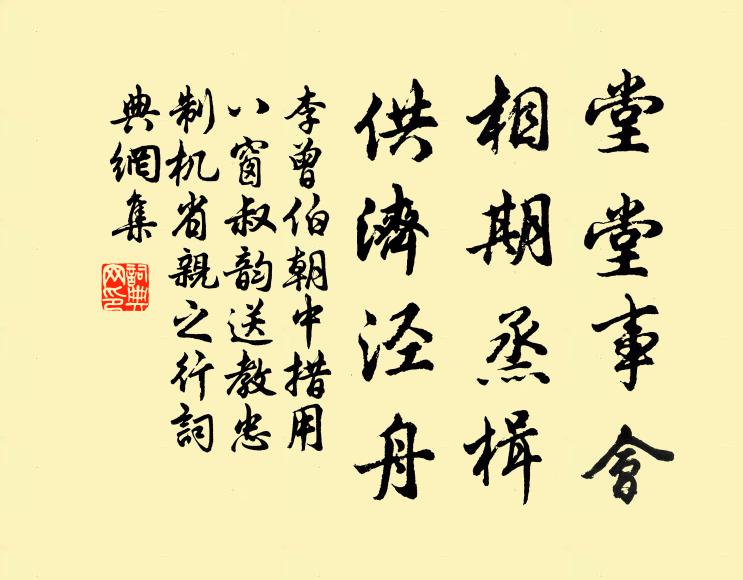 堂堂事會
相期烝楫
供濟泾舟
李曾伯朝中措用
八窗叔韵送教忠
制机省親之行詞
典網集
詞典网印